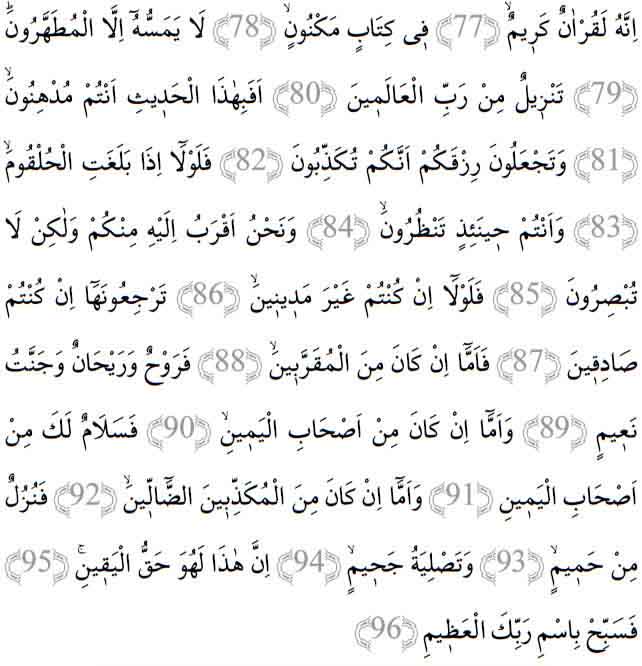 اِنَّهُ لَقُرْاٰنٌ كَر۪يمٌۙ ﴿77﴾ ف۪ي كِتَابٍ مَكْنُونٍۙ ﴿78﴾ لَا يَمَسُّهُٓ اِلَّا الْمُطَهَّرُونَۜ
﴿79﴾ تَنْز۪يلٌ مِنْ رَبِّ الْعَالَم۪ينَ ﴿80﴾ اَفَبِهٰذَا الْحَد۪يثِ اَنْتُمْ مُدْهِنُونَۙ
﴿81﴾ وَتَجْعَلُونَ رِزْقَكُمْ اَنَّكُمْ تُكَذِّبُونَ ﴿82﴾ فَلَوْلَٓا اِذَا بَلَغَتِ الْحُلْقُومَۙ
﴿83﴾ وَاَنْتُمْ ح۪ينَئِذٍ تَنْظُرُونَۙ ﴿84﴾ وَنَحْنُ اَقْرَبُ اِلَيْهِ مِنْكُمْ وَلٰكِنْ لَا
تُبْصِرُونَ ﴿85﴾ فَلَوْلَٓا اِنْ كُنْتُمْ غَيْرَ مَد۪ين۪ينَۙ ﴿86﴾ تَرْجِعُونَهَٓا اِنْ كُنْتُمْ
صَادِق۪ينَ ﴿87﴾ فَاَمَّٓا اِنْ كَانَ مِنَ الْمُقَرَّب۪ينَۙ ﴿88﴾ فَرَوْحٌ وَرَيْحَانٌ وَجَنَّتُ
نَع۪يمٍ ﴿89﴾ وَاَمَّٓا اِنْ كَانَ مِنْ اَصْحَابِ الْيَم۪ينِۙ ﴿90﴾ فَسَلَامٌ لَكَ مِنْ
اَصْحَابِ الْيَم۪ينِ ﴿91﴾ وَاَمَّٓا اِنْ كَانَ مِنَ الْمُكَذِّب۪ينَ الضَّٓالّ۪ينَۙ ﴿92﴾ فَنُزُلٌ
مِنْ حَم۪يمٍۙ ﴿93﴾ وَتَصْلِيَةُ جَح۪يمٍۙ ﴿94﴾ اِنَّ هٰذَا لَهُوَ حَقُّ الْيَق۪ينِۚ ﴿95﴾
فَسَبِّحْ بِاسْمِ رَبِّكَ الْعَظ۪يمِ ﴿96﴾